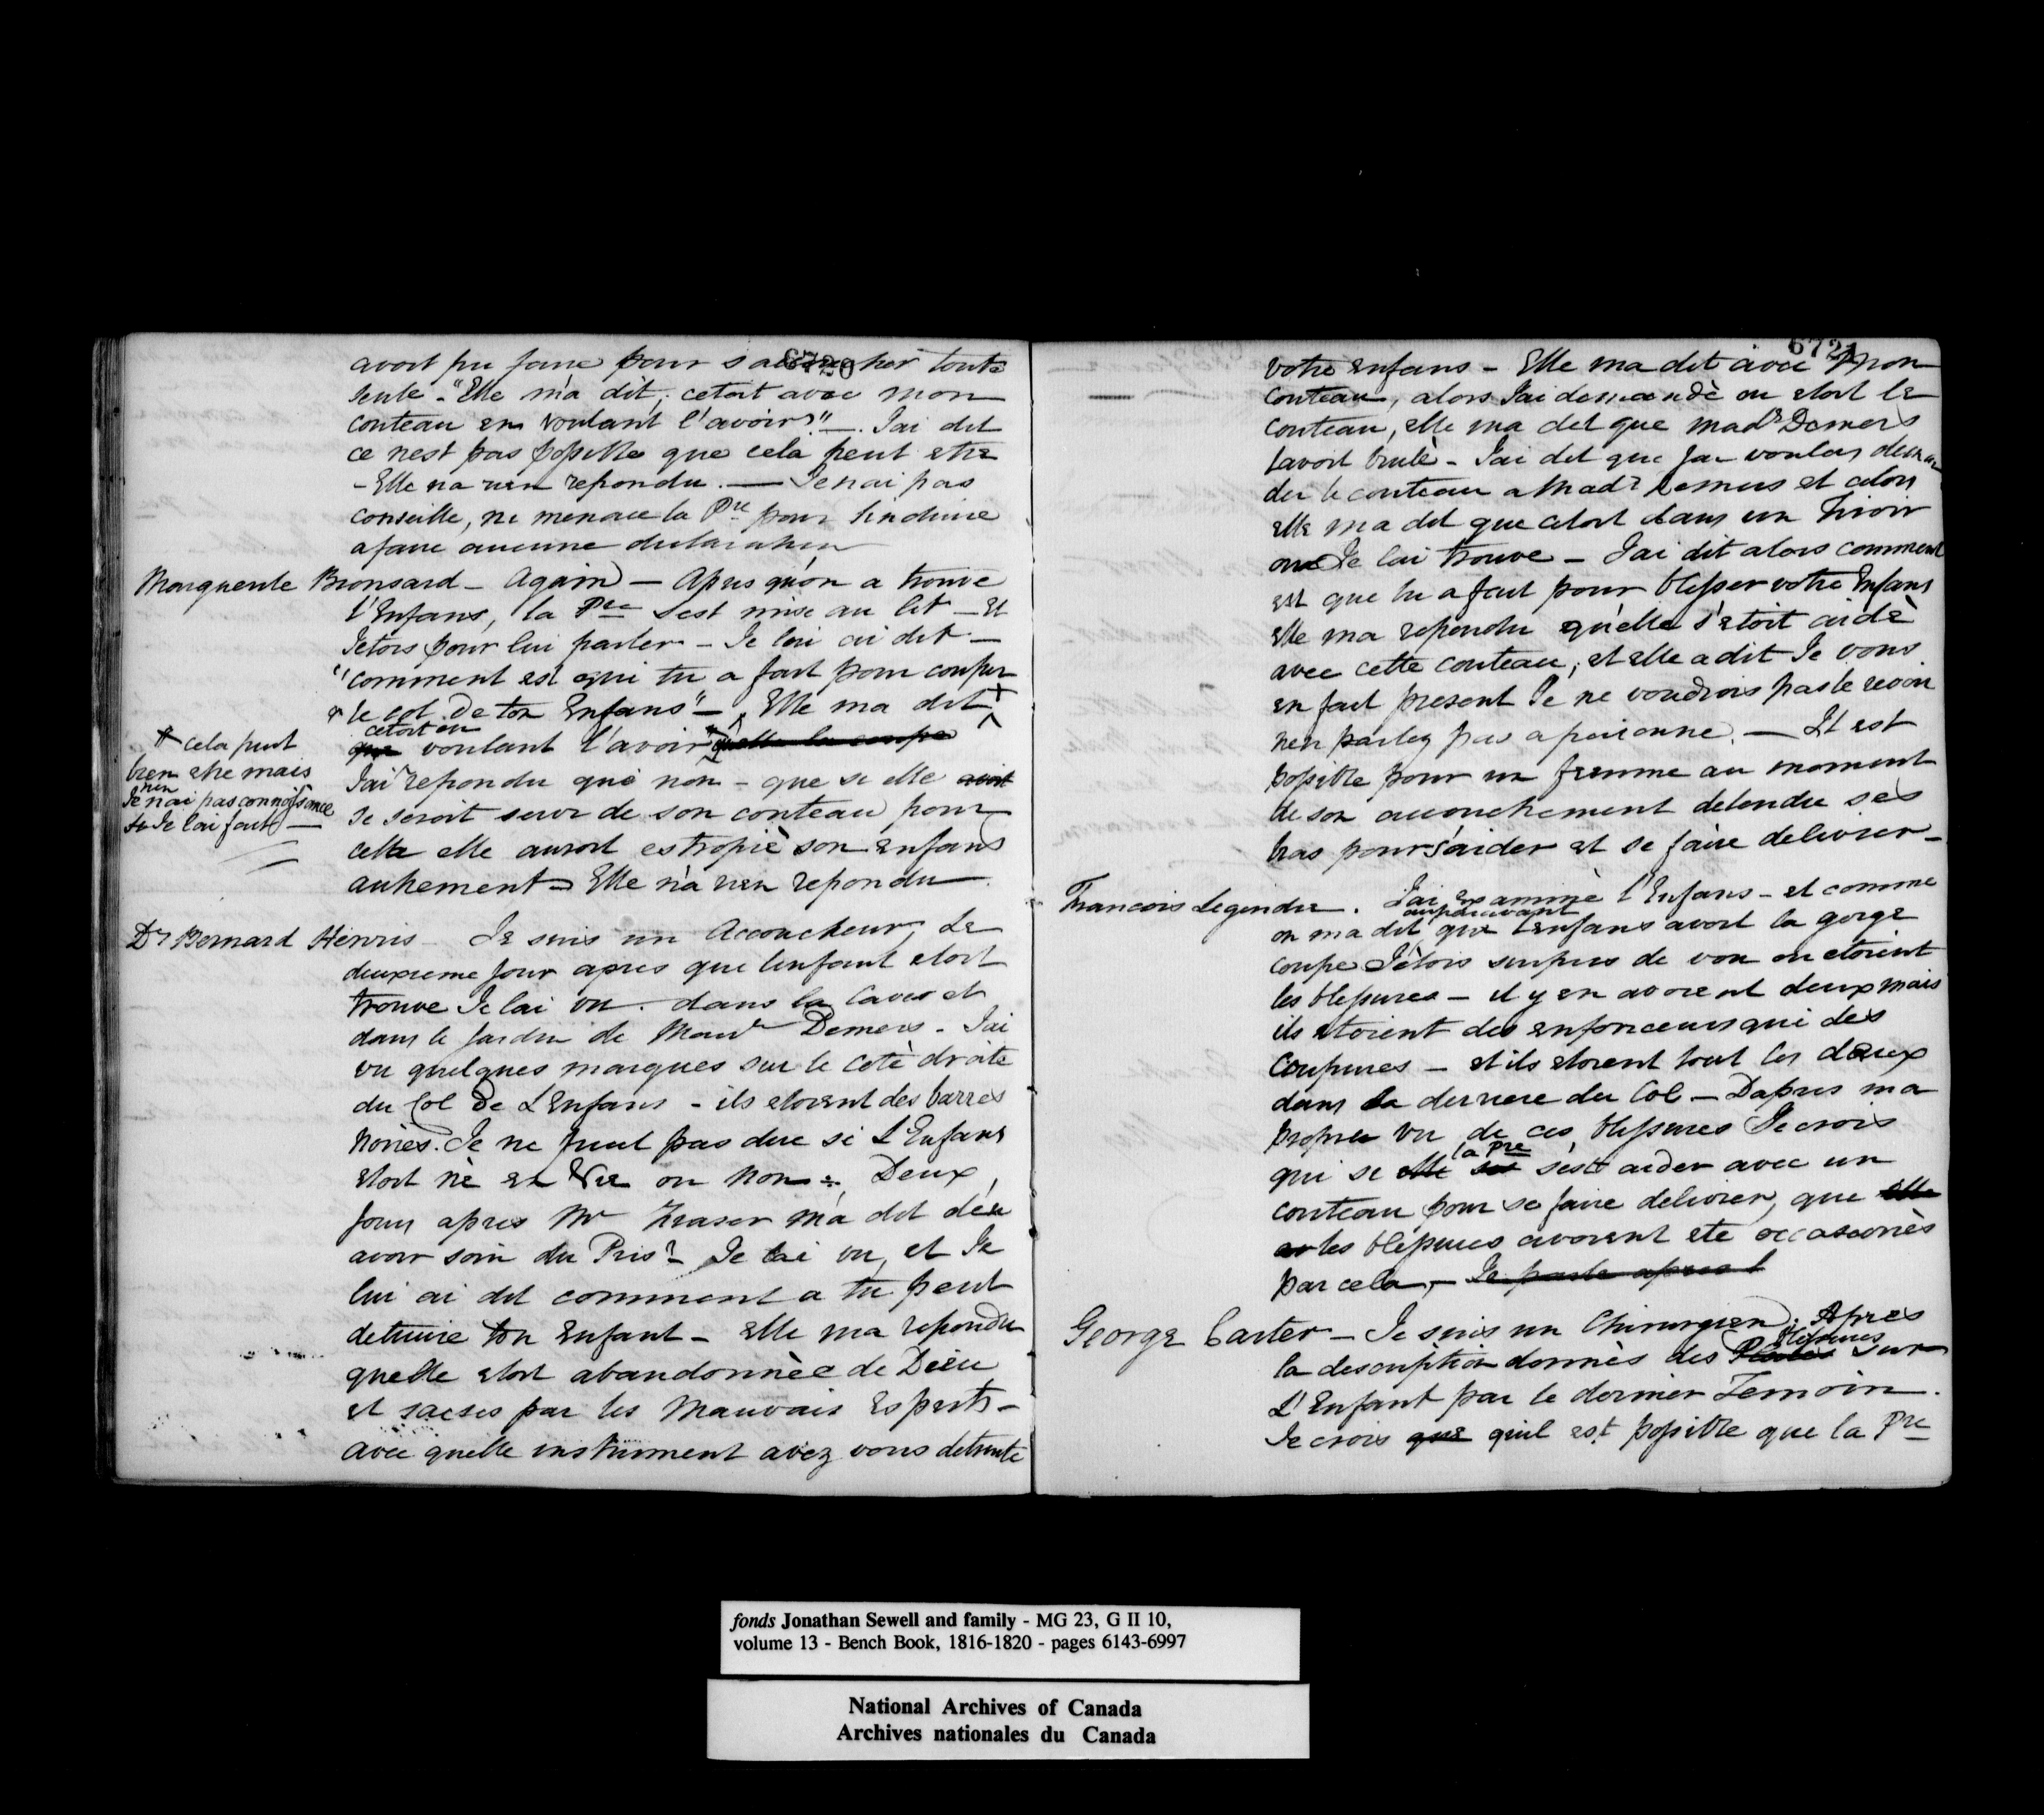 6720
avoit pu faire pour s'accoucher toute
seule - "Elle m'a dit; cetoit avec mon
couteau en voulant l'avoir" - Jai dit
ce nest pas possible que cela peut etre
- Elle na rien repondu. — Je nai pas
conseille, ni menace la Pre pour linduire
a faire aucune declaration
Marguerite Bronsard - Again - Apres qu'on a trouve
l'Enfans, la Pre s'est mise au lit - Et
Jetois pour lui parler - Je lui ai dit -
"comment est qui tu a fait pour couper
le col de ton Enfans" - Elle ma dit
cetoit en
que voulant l'avoir quelle la coupe
+ cela peut
bien etre mais
rien
Je nai pas connoissance
si Je lai fait —
Jai repondu que non - que si elle avoit
se seroit servi de son couteau pour
cela elle auroit estropiè son enfans
autrement - Elle n'a rien repondu
Dr Bernard Henris - Je suis un Accoucheur, Le
deuxieme Jour apres que lenfant etoit
trouve Je lai vu. dans la Cave et
dans le Jardin de Madr Demers - Jai
vu quelques marques sur le cotè droite
du Col de L'Enfans - ils etoient des barres
noires. Je ne peut pas dire si L'Enfans
etoit nè en Vie ou non - Deux
Jour apres Mr Fraser m'a dit d'en
avoir soin du Prisr - Je lai vu, et Je
lui ai dit comment a tu peut
detruire ton Enfant - elle ma repondu
quelle etoit abandonnèe de Dieu
et par les Mauvais Esprits -
avec quelle instrument avez vous detruite
6721
votre enfans - Elle ma dit avec mon
couteau, alors Jai demandè ou etoit le
couteau, elle ma dit que madr Demers
lavoit brulè - Jai dit que Jai voulois deman
der le couteau a Madr Demers et alors
elle ma dit que cetoit dans un Tiroir
ou Je lai trouve - Jai dit alors comment
est que tu a fait pour blesser votre Enfans
elle ma repondu qu'elle s'etoit aidè
avec cette couteau, et elle a dit Je vous
en fait present Je ne voudrois pas le revoir
nen parlez pas a personne. — Il est
possible pour un femme au moment
de son accouchement detendre ses
bras pour s'aider et se faire delivrer -
Francois Legendre. Jai examinè l'Enfans - et comme
auparavant
on ma dit que lenfans avoit la gorge
coupe Jetois surpris de voir ou etoient
les blessures - il y en avoient deux mais
ils etoient des enfonceurs qui des
coupures - et ils etoient tout les deux
dans la derriere du Col - Dapres ma
propre vu de ces blessures Je crois
la Pre
qui si elle s'est aider avec un
couteau pour se faire delivrer, que elle
les blessures avoient ete occasionès
par cela, - Je parle apres l
George Carter - Je suis un Chirurgien; Apres
blessures
la description donnès des Plaies sur
L'Enfant par le dernier Temoin.
Je crois que quil est possible que la Pre
fonds Jonathan Sewell and family - MG 23, G II 10,
volume 13 - Bench Book, 1816-1820 - pages 6143-6997
National Archives of Canada
Archives nationales du Canada